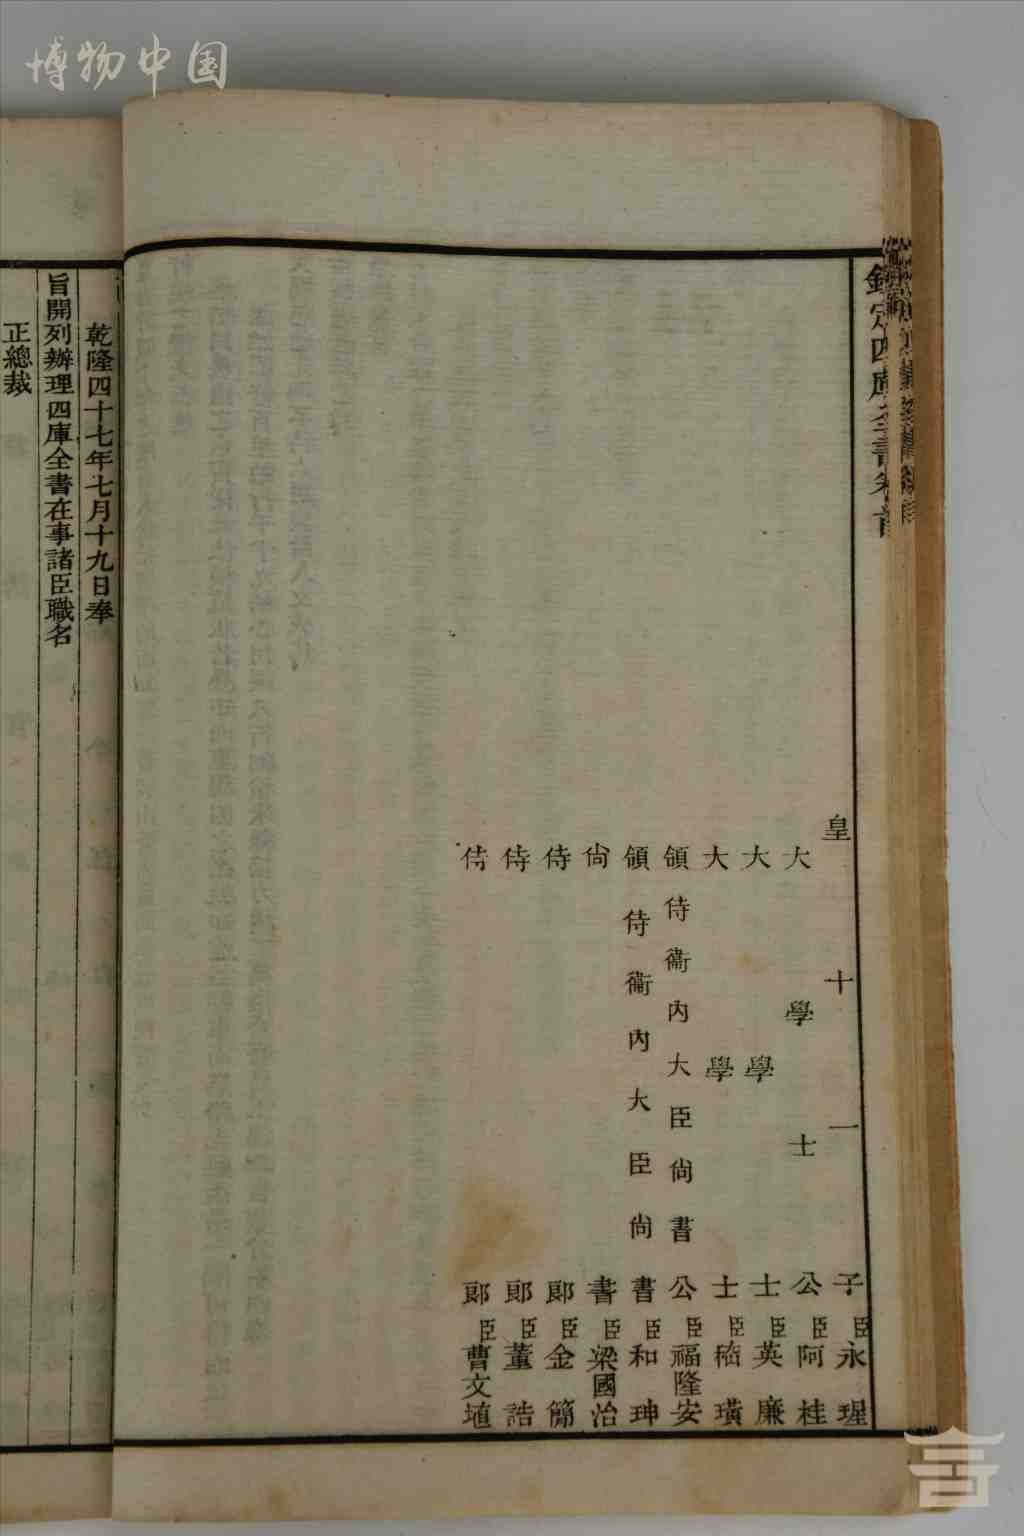 博物中国
欽定四庫全書卷首
皇十一子臣永瑆
大學士公臣阿桂
大學士臣英廉
大學士臣嵇璜
領侍衞內大臣尙書公臣福隆安
領侍衞內大臣尙書臣和珅
尙書臣梁國治
侍郞臣金簡
侍郞臣董誥
侍郞臣曹文埴
乾隆四十七年七月十九日奉
旨開列辦理四庫全書在事諸臣職名
正總裁